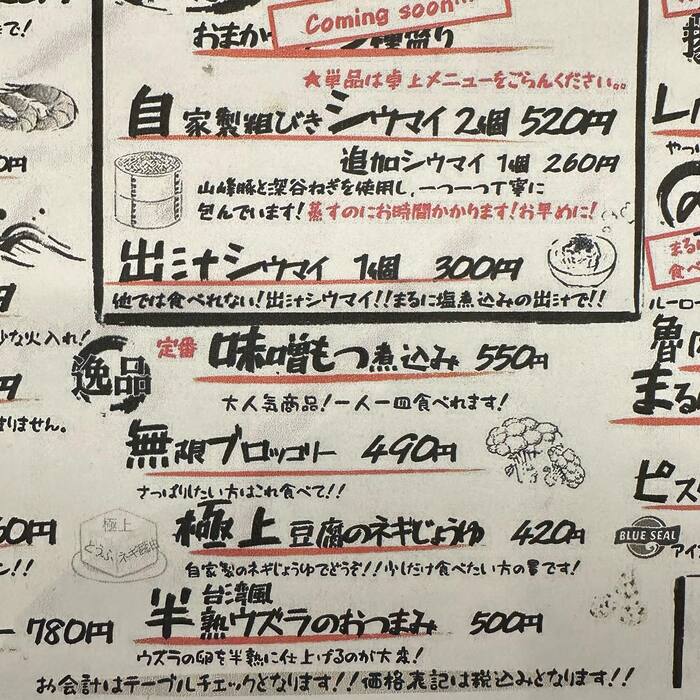 Coming soon...
おまか
★単品は卓上メニューをごらんください。。
自家製粗びきシウマイ 2個 520円
追加シウマイ 1個 260円
山峰豚と深谷ねぎを使用し、一つ一つ丁寧に
包んでいます！蒸すのにお時間かかります！お早めに！
出汁シウマイ 1個 300円
他では食べれない！出汁シウマイ！！まるに塩煮込みの出汁で！！
逸品
定番 味噌もつ煮込み 550円
大人気商品！一人一皿食べれます！
無限ブロッコリー 490円
さっぱりしたい方はこれ食べて！！
極上
とうふ ネギ醤油
極上豆腐のネギじょうゆ 420円
自家製のネギじょうゆでどうぞ！！少しだけ食べたい方の冪です！
台湾風
半熟ウズラのおつまみ 500円
ウズラの卵を半熟に仕上げるのが大変！
お会計はテーブルチェックとなります！！価格表記は税込みとなります！！
で！
0円
な火入れ！
円
ません。
60円
ン！！
ー 780円
やっ
まる
食べ
ルーロー
魯
まる
ピス
BLUE SEAL
アイ